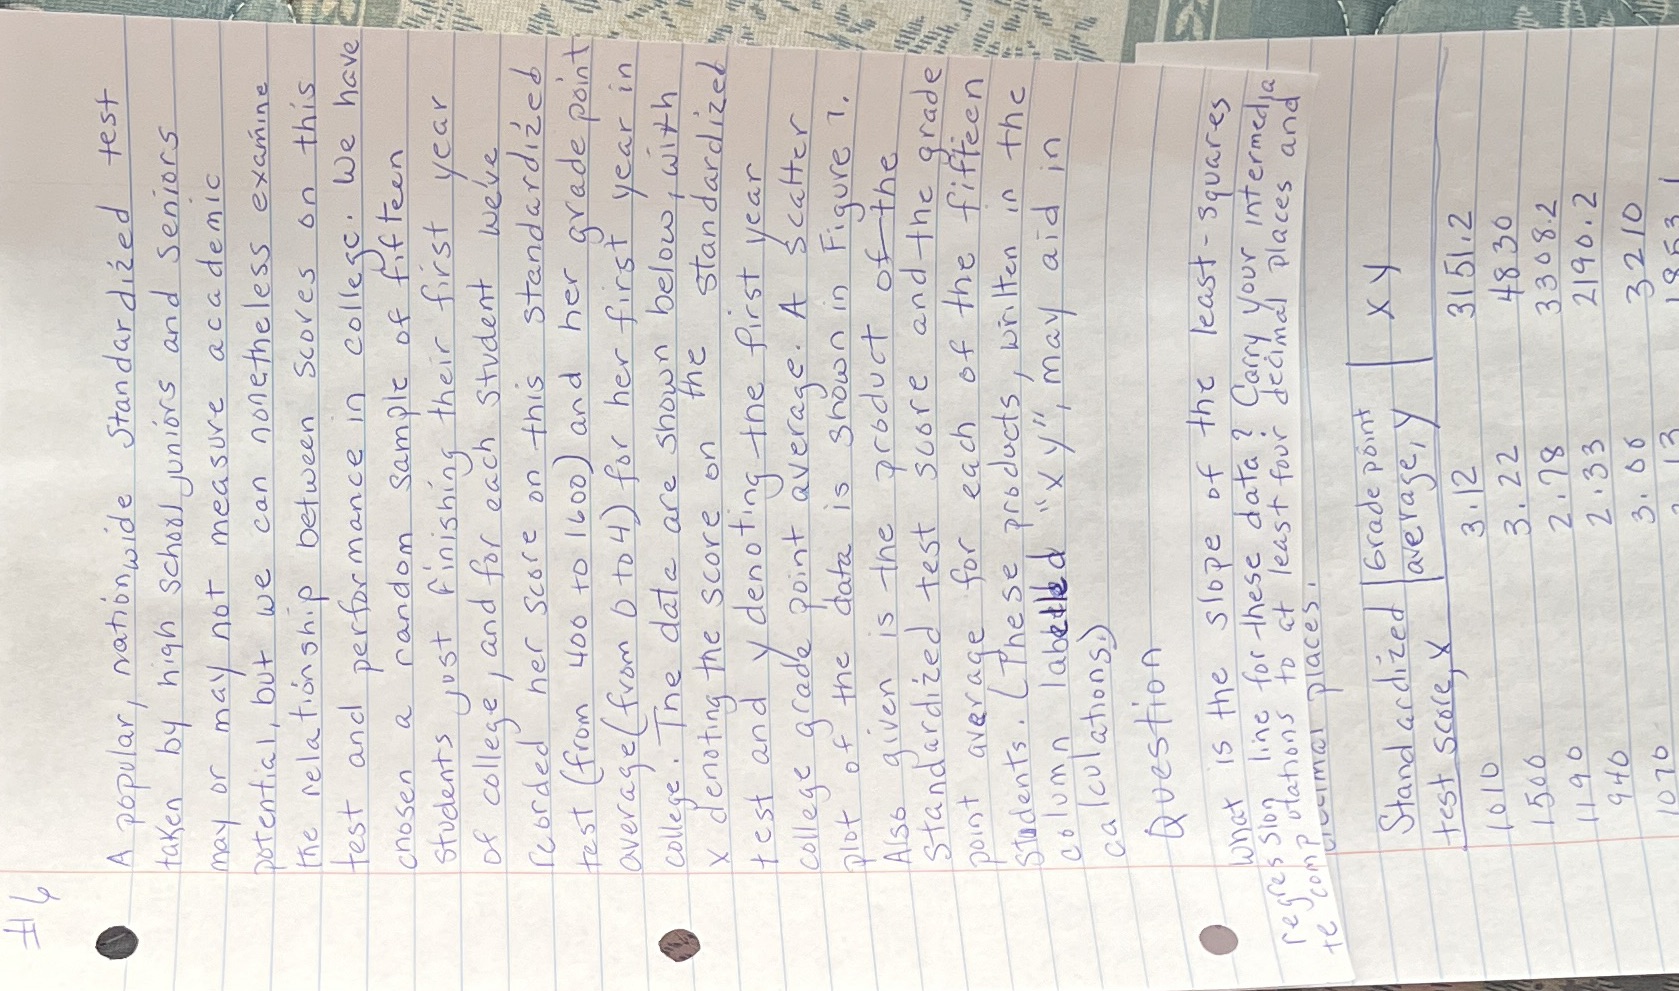 #6
A popular, nationwide standardized test
taken by high school juniors and seniors
may or may not measure academic
potential, but we can nonetheless examine
the relationship between scores on this
test and performance in college. We have
chosen a random sample of fifteen
students just finishing their first year
of college, and for each student we've
recorded her score on this standardized
test (from 400 to 1600) and her grade point
average (from 0 to 4) for her first year in
college. The data are shown below, with
x denoting the score on the standardized
test and y denoting the first year
college grade point average. A scatter
plot of the data is shown in Figure 1.
Also given is the product of the
Standardized test score and the grade
point average for each of the fifteen
Students. (These products, written in the
column labelled "xy", may aid in
calculations.)
Question
What is the slope of the least-squares
regression line for these data? Carry your intermedia
te computations to at least four decimal places and
decimal places.
Standardized Grade point
test score, x average, y xy
1010 3.12 3151.2
1500 3.22 4830
1190 2.78 3308.2
940 2.33 2190.2
1070 3.00 3210